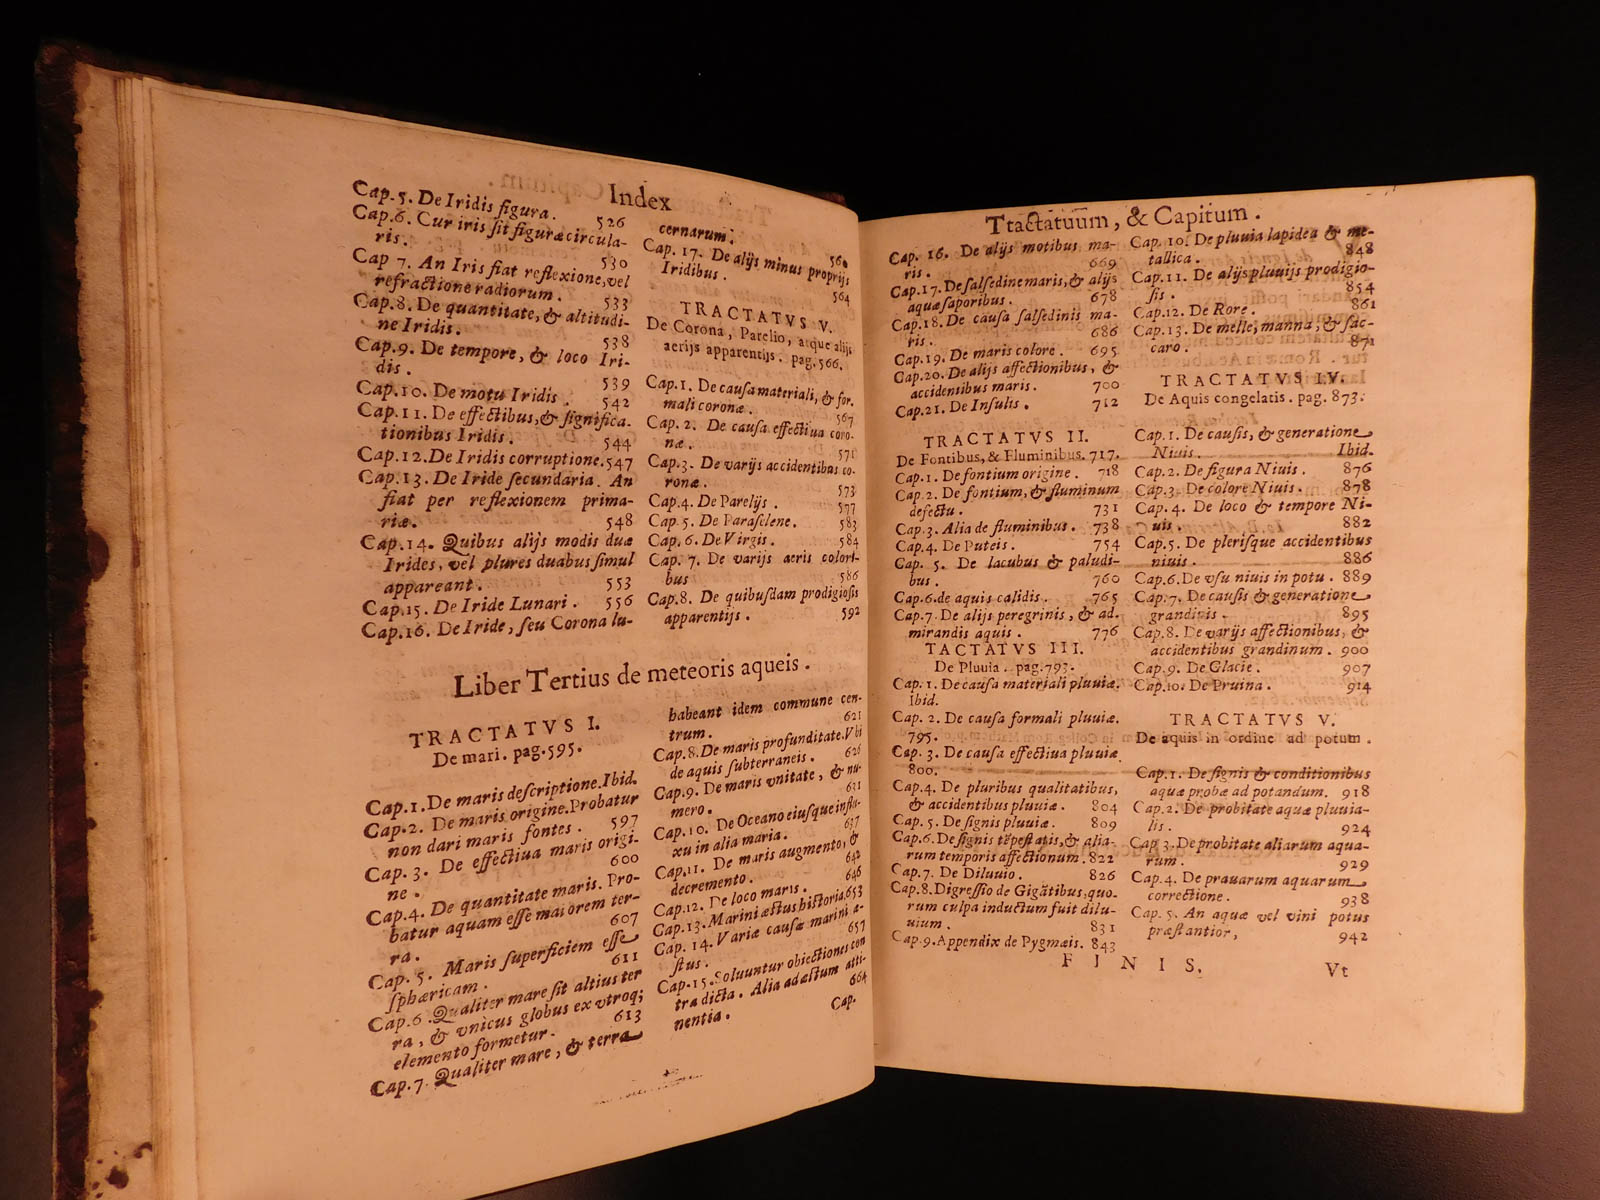 Index
Cap. 5. De Iridis figura. 526
Cap. 6. Cur iris sit figuræ circula-
ris. 530
Cap 7. An Iris fiat reflexione, vel
refractione radiorum. 533
Cap. 8. De quantitate, & altitudi-
ne Iridis. 538
Cap. 9. De tempore, & loco Iri-
dis. 539
Cap. 10. De motu Iridis. 542
Cap. 11. De effectibus, & significa-
tionibus Iridis. 544
Cap. 12. De Iridis corruptione. 547
Cap. 13. De Iride secundaria. An
fiat per reflexionem prima-
riæ. 548
Cap. 14. Quibus alijs modis duæ
Irides, vel plures duabus simul
appareant. 553
Cap. 15. De Iride Lunari. 556
Cap. 16. De Iride, seu Corona lu-
cernarum. 560
Cap. 17. De alijs minus proprijs
Iridibus. 564
TRACTATVS V.
De Corona, Parelio, atque alijs
aerijs apparentijs. pag. 566.
Cap. 1. De causa materiali, & for-
mali coronæ. 567
Cap. 2. De causa effectiua coro-
næ. 571
Cap. 3. De varijs accidentibus co-
ronæ. 573
Cap. 4. De Parelijs. 577
Cap. 5. De Paraselene. 583
Cap. 6. De Virgis. 584
Cap. 7. De varijs aeris colori-
bus 586
Cap. 8. De quibusdam prodigiosis
apparentijs. 592
Liber Tertius de meteoris aqueis.
TRACTATVS I.
De mari. pag. 595.
Cap. 1. De maris descriptione. Ibid.
Cap. 2. De maris origine. Probatur
non dari maris fontes. 597
Cap. 3. De effectiua maris origi-
ne. 600
Cap. 4. De quantitate maris. Pro-
batur aquam esse maiorem ter-
ra. 607
Cap. 5. Maris superficiem esse
sphæricam. 611
Cap. 6. Qualiter mare sit altius ter
ra, & vnicus globus ex vtroq;
elemento formetur. 613
Cap. 7. Qualiter mare, & terra
habeant idem commune cen-
trum. 621
Cap. 8. De maris profunditate. Vbi
de aquis subterraneis. 626
Cap. 9. De maris vnitate, & nu-
mero. 631
Cap. 10. De Oceano eiusque influ-
xu in alia maria. 637
Cap. 11. De maris augmento, &
decremento. 642
Cap. 12. De loco maris. 646
Cap. 13. Marini æstus historia. 653
Cap. 14. Variæ causæ marini æ-
stus. 657
Cap. 15. Soluuntur obiectiones con
tra dicta. Alia ad æstum atti-
nentia. 664
Cap.
Ttactatuum, & Capitum.
Cap. 16. De alijs motibus ma-
ris. 669
Cap. 17. De salsedine maris, & alijs
aquæ saporibus. 678
Cap. 18. De causa salsedinis ma-
ris. 686
Cap. 19. De maris colore. 695
Cap. 20. De alijs affectionibus, &
accidentibus maris. 700
Cap. 21. De Insulis. 712
TRACTATVS II.
De Fontibus, & Fluminibus. 717.
Cap. 1. De fontium origine. 718
Cap. 2. De fontium, & fluminum
defectu. 731
Cap. 3. Alia de fluminibus. 738
Cap. 4. De Puteis. 754
Cap. 5. De lacubus & paludi-
bus. 760
Cap. 6. de aquis calidis. 765
Cap. 7. De alijs peregrinis, & ad-
mirandis aquis. 776
TACTATVS III.
De Pluuia. pag. 793.
Cap. 1. De causa materiali pluuiæ.
Ibid.
Cap. 2. De causa formali pluuiæ.
795.
Cap. 3. De causa effectiua pluuiæ
800.
Cap. 4. De pluribus qualitatibus,
& accidentibus pluuiæ. 804
Cap. 5. De signis pluuiæ. 809
Cap. 6. De signis tẽpestatis, & alia-
rum temporis affectionum. 822
Cap. 7. De Diluuio. 826
Cap. 8. Digressio de Gigãtibus, quo-
rum culpa inductum fuit dilu-
uium. 831
Cap. 9. Appendix de Pygmæis. 843
Cap. 10. De pluuia lapidea & me-
tallica. 848
Cap. 11. De alijs pluuijs prodigio-
sis. 854
Cap. 12. De Rore. 861
Cap. 13. De melle, manna, & sac-
caro. 871
TRACTATVS IV.
De Aquis congelatis. pag. 873.
Cap. 1. De causis, & generatione
Niuis. Ibid.
Cap. 2. De figura Niuis. 876
Cap. 3. De colore Niuis. 878
Cap. 4. De loco & tempore Ni-
uis. 882
Cap. 5. De plerisque accidentibus
niuis. 886
Cap. 6. De vsu niuis in potu. 889
Cap. 7. De causis & generatione
grandinis. 895
Cap. 8. De varijs affectionibus, &
accidentibus grandinum. 900
Cap. 9. De Glacie. 907
Cap. 10. De Pruina. 914
TRACTATVS V.
De aquis in ordine ad potum.
Cap. 1. De signis & conditionibus
aquæ probæ ad potandum. 918
Cap. 2. De probitate aquæ pluuia-
lis. 924
Cap 3. De probitate aliarum aqua-
rum. 929
Cap. 4. De prauarum aquarum
correctione. 938
Cap. 5. An aquæ vel vini potus
præstantior, 942
FINIS.
Vt